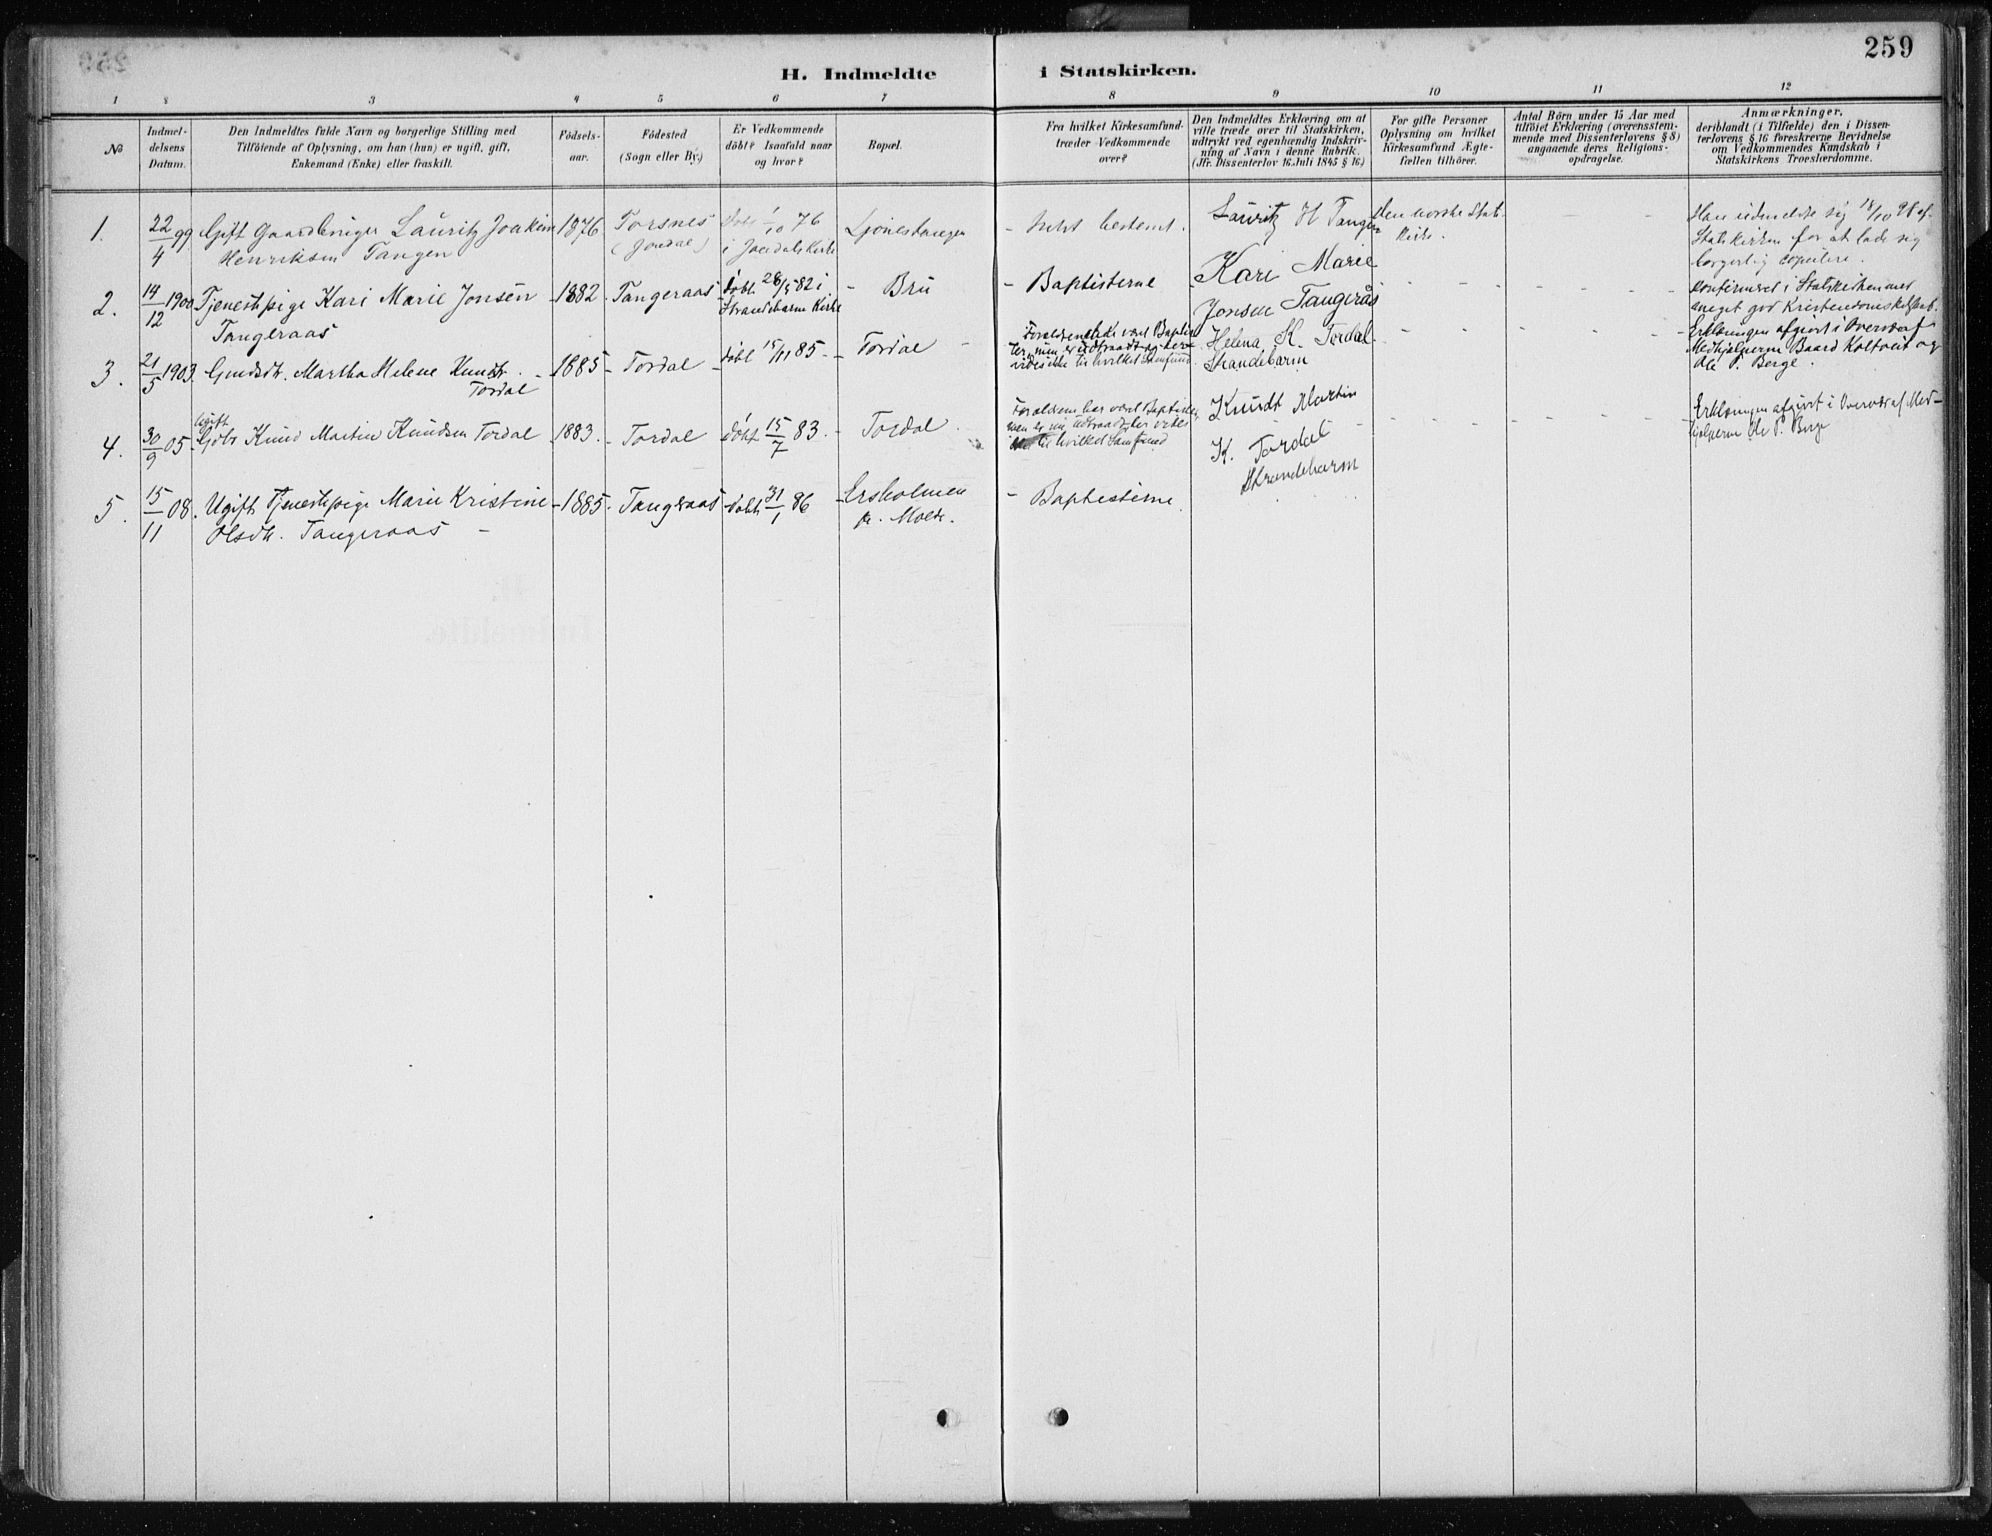 259
H. Indmeldte i Statskirken.
1 2 3 4 5 6 7 8 9 10 11 12
No
Indmel-
delsens
Datum.
Den Indmeldtes fulde Navn og borgerlige Stilling med
Tilföiende af Oplysning, om han (hun) er ugift, gift,
Enkemand (Enke) eller fraskilt.
Födsels-
aar.
Födested
(Sogn eller By.)
Er Vedkommende
döbt? Isaafald naar
og hvor?
Bopæl.
Fra hvilket Kirkesamfund
træder Vedkommende
over?
Den Indmeldtes Erklæring om at
ville træde over til Statskirken,
udtrykt ved egenhændig Indskriv-
ning af Navn i denne Rubrik.
(Jfr. Dissenterlov 16 Juli 1845 § 16)
For gifte Personer
Oplysning om hvilket
Kirkesamfund Ægte-
fællen tilhörer.
Antal Börn under 15 Aar med
tilföiet Erklæring (overensstem-
mende med Dissenterlovens § 8)
angaaende deres Religions-
opdragelse.
Anmærkninger,
deriblandt (i Tilfælde) den i Dissen-
terlovens § 16 foreskrevne Bevidnelse
om Vedkommendes Kundskab i
Statskirkens Troeslærdomme.
1. 22/4 99 Gift Lauritz Joakim
Henriksen Tangen
1876
Torsnes
(Jondal)
Døbt 1/10 76
i Jondals Kirke
Ljonestangen
Intet bestemt.
Lauritz H Tangen
Den norske Stats-
kirke.
Han udmeldte sig 18/10 98 af
Statskirken for at lade sig
borgerlig copulere.
2. 14/12 1900 Tjenestepige Kari Marie Jonsen
Tangeraas
1882
Tangeraas
døbt 28/5 82 i
Strandebarm Kirke
Bru
Baptisterne
Kari Marie
Jonsen Tangirås
Konfirmeret i Statskirken med
meget god Kristendomskundskab.
3. 21/5 1903 Martha Helene Knudsdt.
Tordal
1885
Tordal
døbt 15/11 85
Tordal
Forældrene har været Baptis-
ter, men er udtraadt og her
vides ikke til hvilket Samfund.
Helena K. Tordal
Strandebarm
Erklæringen afgivet i Overvær af
Medhjelperne Baard Koltveit og
Ole P. Berge.
4. 30/9 05 Ugift Knud Martin Knudsen Tordal
1883
Tordal
døbt 15/7 83
Tordal
Forældrene har været Baptister,
men er nu udtraadt, her vides
ikke til hvilket Samfund
Knudt Martin
K. Tordal
Strandebarm
Erklæringen afgivet i Overvær af Med-
hjelperne Ole P. Berge
5. 15/11 08. Ugift Tjenestepige Marie Kristine
Olsdtr. Tangeraas
1885
Tangeraas
døbt 31/1 86
Ersholmen
Baptisterne